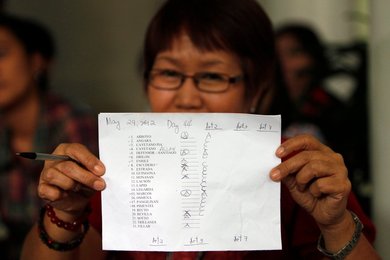 May 29, 2012 Day 44 Art 2 Art 3 Art 7
1. ARROYO
2. ANGARA
3. CAYETANO
4. CAYETANO
5. DEFENSOR / SANTIAGO
6. DRILON
7. ENRILE
8. ESCUDERO
9. ESTRADA
10. GUINGONA
11. HONASAN
12. LACSON
13. LAPID
14. LEGARDA
15. MARCOS
16. OSMENA
17. PANGILINAN
18. PIMENTEL
19. RECTO
20. REVILLA
21. SOTTO
22. TRILLANES
23. VILLAR
Art 2 Art 3 Art 7